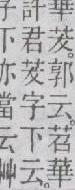 華茇郭云苕華
許君茇字下云
字下亦當云艸